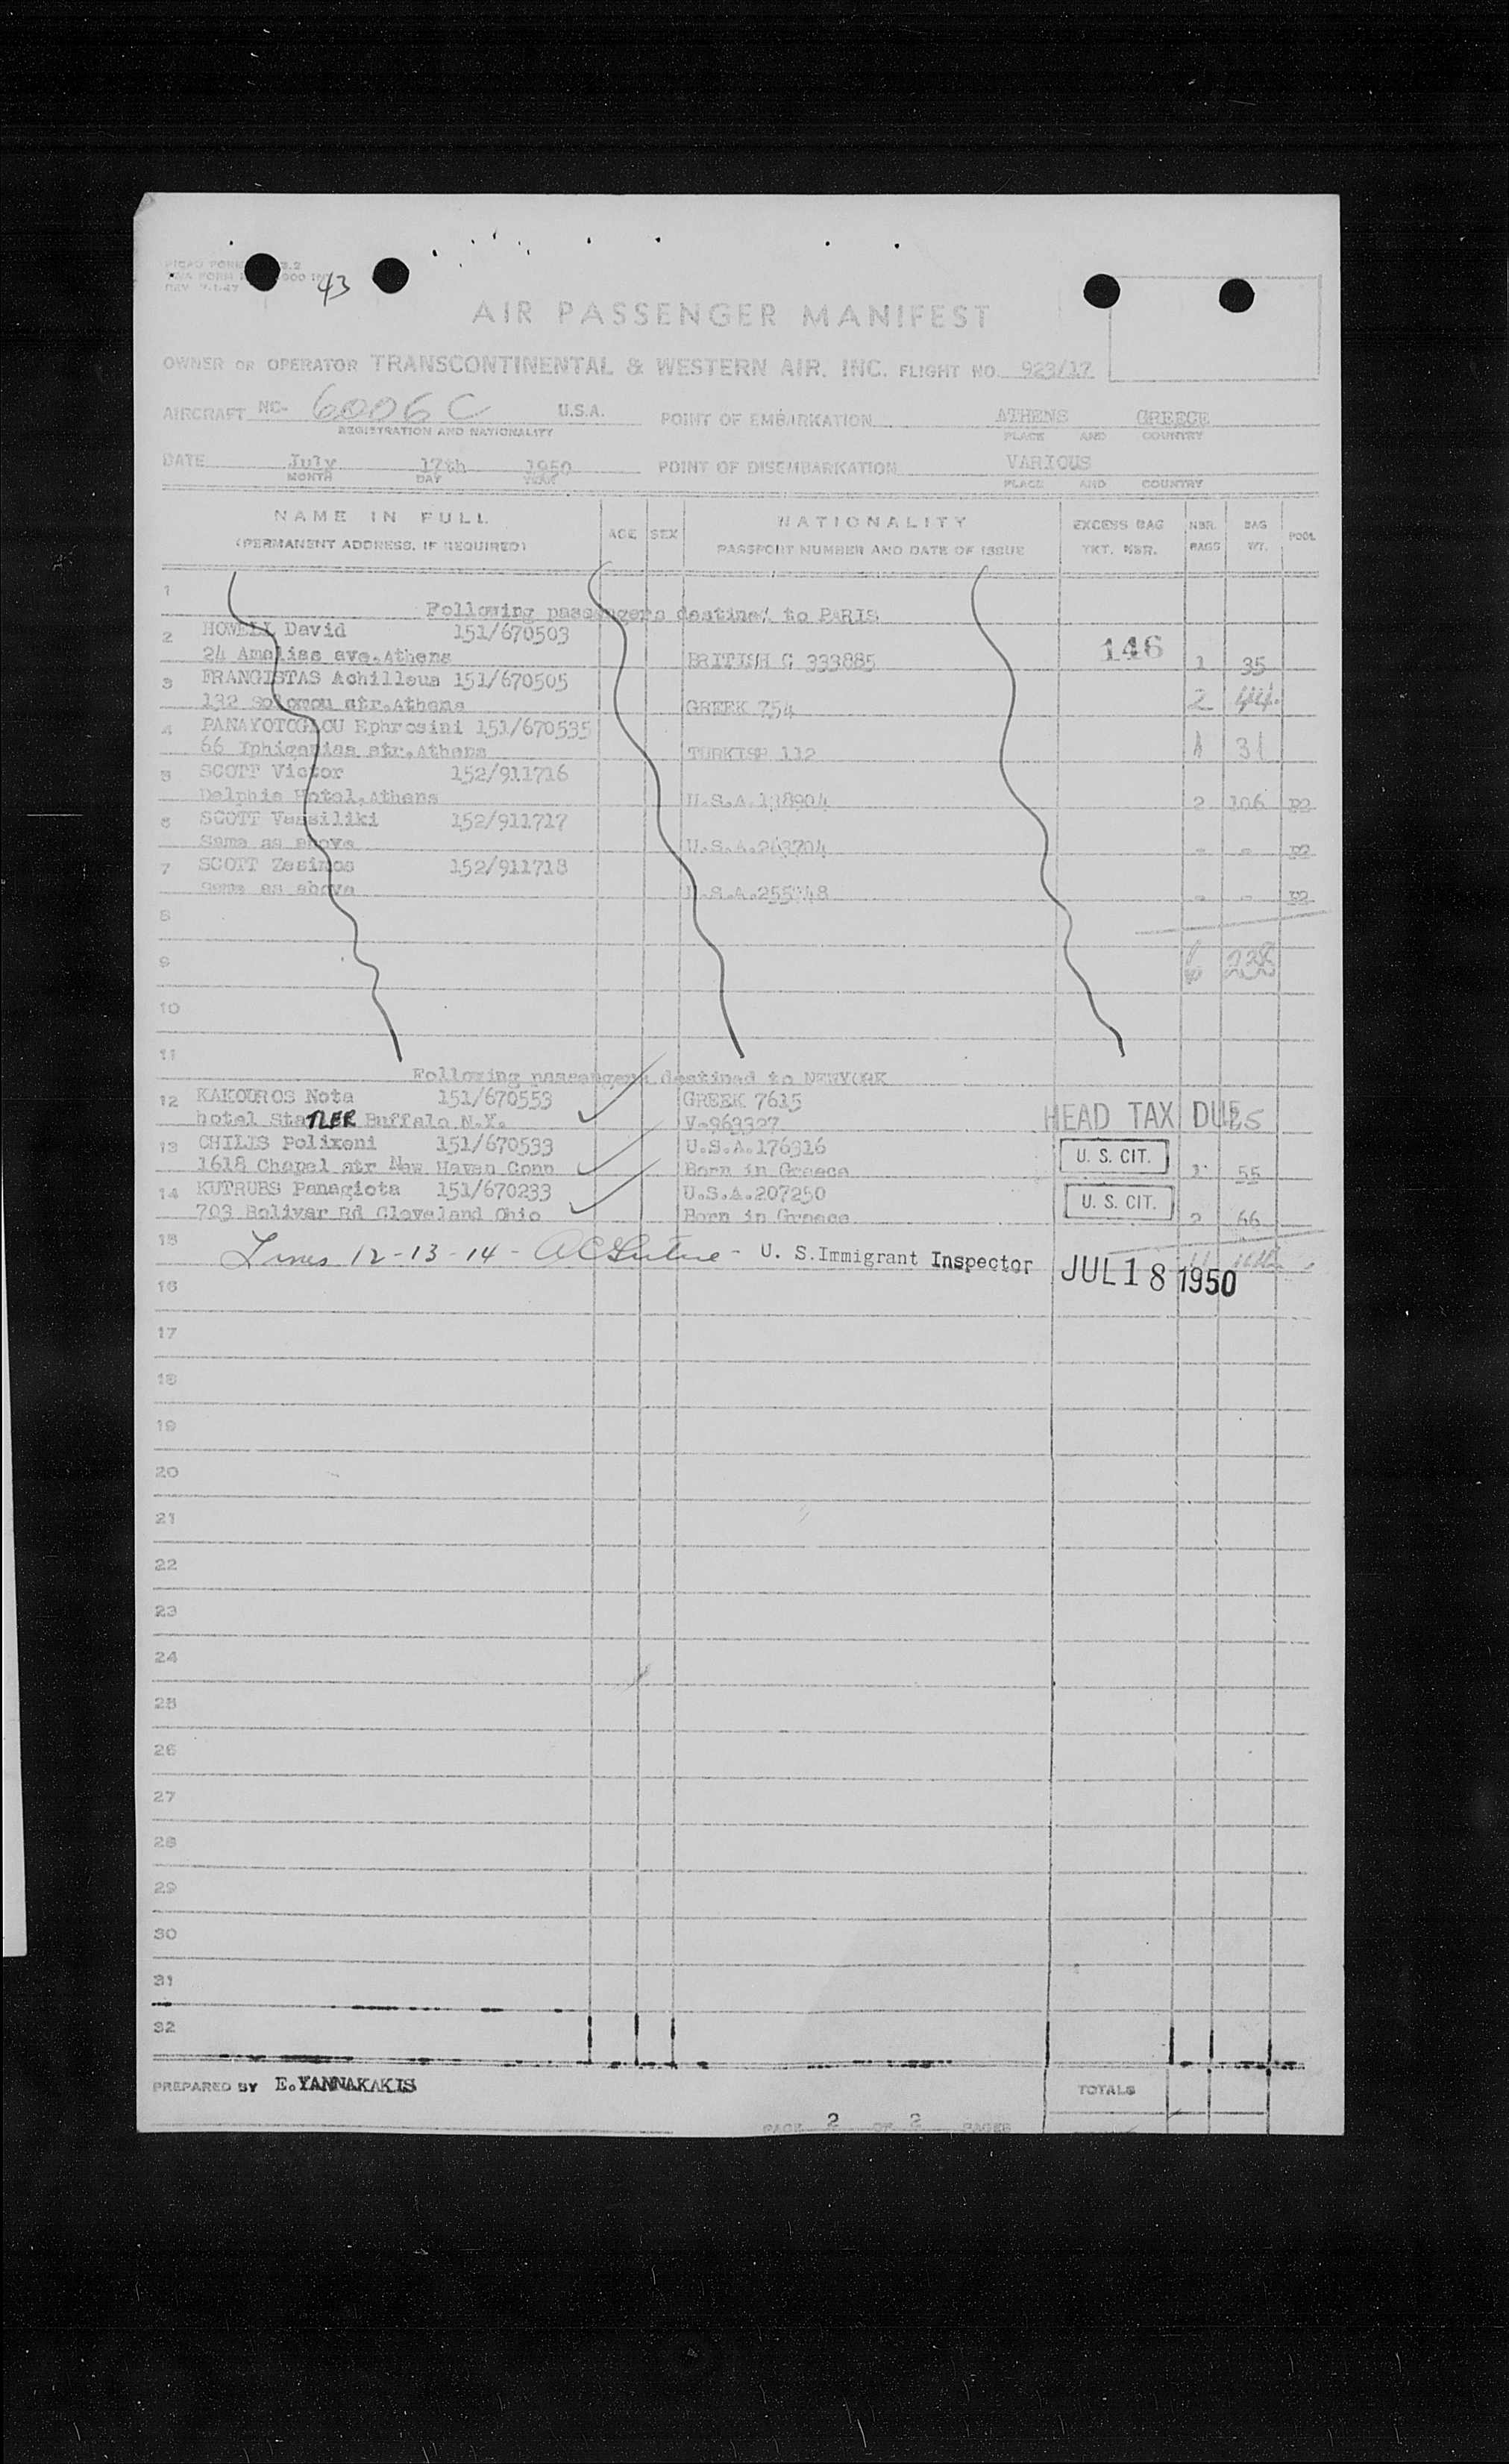 43
AIR PASSENGER MANIFEST
OWNER OR OPERATOR TRANSCONTINENTAL & WESTERN AIR, INC. FLIGHT NO. 923/17
AIRCRAFT NC- 6006C U.S.A. POINT OF EMBARKATION ATHENS GREECE
REGISTRATION AND NATIONALITY PLACE AND COUNTRY
DATE July 17th 1950 POINT OF DISEMBARKATION VARIOUS
MONTH DAY YEAR PLACE AND COUNTRY
NAME IN FULL AGE SEX NATIONALITY EXCESS BAG NBR. BAG POOL
(PERMANENT ADDRESS, IF REQUIRED) PASSPORT NUMBER AND DATE OF ISSUE TKT. NBR. BAGS WT.
1
Following passengers destined to PARIS
2 HOWELL David 151/670503
24 Amalias ave.Athens BRITISH C 333885 146 1 35
3 FRANGISTAS Achilleus 151/670505
132 Solomou str.Athens GREEK 754 2 44
4 PANAYOTOGLOU Ephrosini 151/670535
66 Iphigenias str.Athens TURKISH 112 1 31
5 SCOTT Victor 152/911716
Delphis Hotel,Athens U.S.A.138904 2 106 P2
6 SCOTT Vassiliki 152/911717
Same as above U.S.A.263704 - - P2
7 SCOTT Zesimos 152/911718
Same as above - - P2
8
9 6
10
11
Following passengers destined to NEWYORK
12 KAKOUROS Nota 151/670553 GREEK 7615
hotel StaTLER Buffalo N.Y. V-963327 HEAD TAX DUE
13 CHILIS Polixeni 151/670533 U.S.A.176316 U. S. CIT.
1618 Chapel str New Haven Conn Born in Greece 1 55
14 KUTRUBS Panagiota 151/670233 U.S.A.207250 U. S. CIT.
703 Bolivar Rd Cleveland Ohio Born in Greece 2 66
15 Lines 12-13-14- - U. S. Immigrant Inspector JUL 18 1950
16
17
18
19
20
21
22
23
24
25
26
27
28
29
30
31
32
PREPARED BY E.YANNAKAKIS TOTALS
PAGE 2 OF 2 PAGES